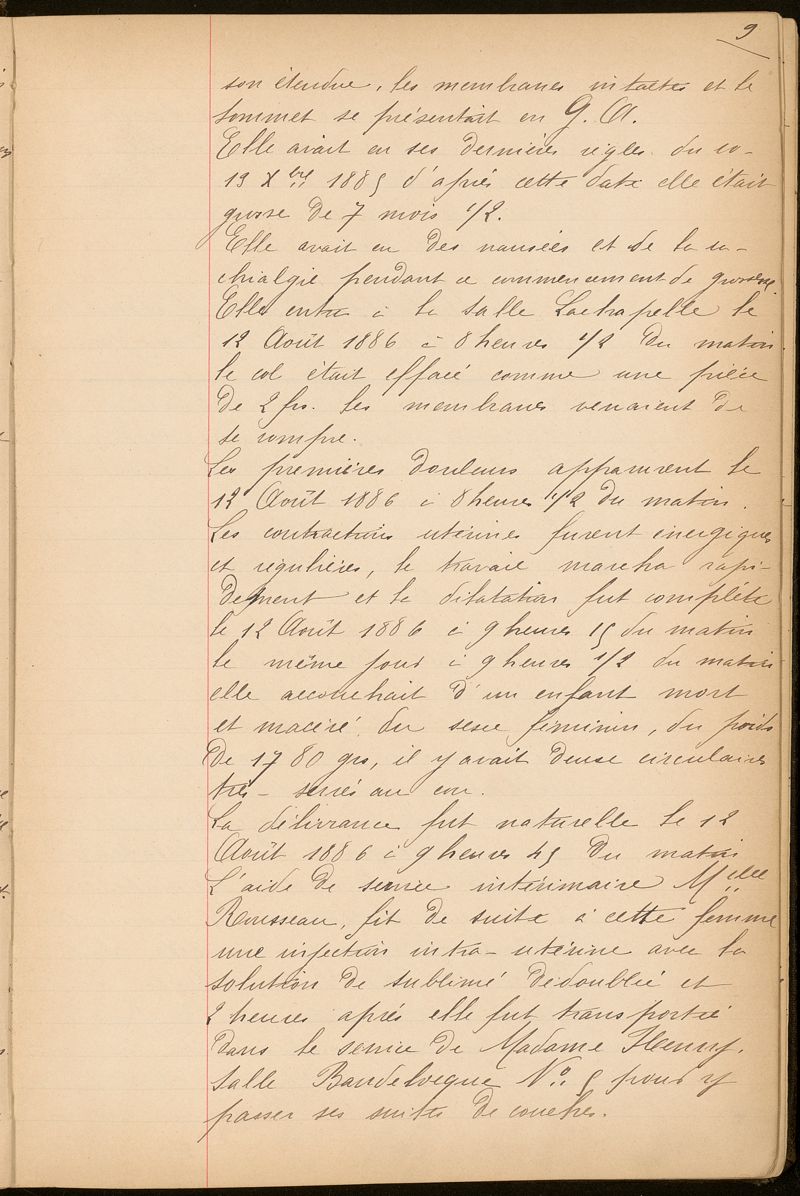 9
son étendue, les membranes intactes et le
sommet se présentait en G. A.
Elle avait eu ses dernières règles du 10-
19 Xbre 1885 d'après cette date elle était
grosse de 7 mois 1/2.
Elle avait eu des nausées et de la ra-
chialgie pendant ce commencement de grossesse.
Elle entra à la salle Lachapelle le
12 Août 1886 à 8 heures 1/2 du matin
le col était effacé comme une pièce
de 2 frs. les membranes venaient de
se rompre.
Les premières douleurs apparurent le
12 Août 1886 à 8 heures 1/2 du matin.
Les contractions utérines furent énergiques
et régulières, le travail marcha rapi-
dement et la dilatation fut complète
le 12 Août 1886 à 9 heures 15 du matin
le même jour à 9 heures 1/2 du matin
elle accouchait d'un enfant mort
et macéré, du sexe féminin, du poids
de 1780 grs, il y avait deux circulaires
très-serrés au cou.
La délivrance fut naturelle le 12
Août 1886 à 9 heures 45 du matin
L'aide de service intérimaire Melle
Rousseau, fit de suite à cette femme
une injection intra-utérine avec la
solution de sublimé dédoublée et
2 heures après elle fut transportée
dans le service de Madame Henry,
salle Baudelocque No 5 pour y
passer ses suites de couches.